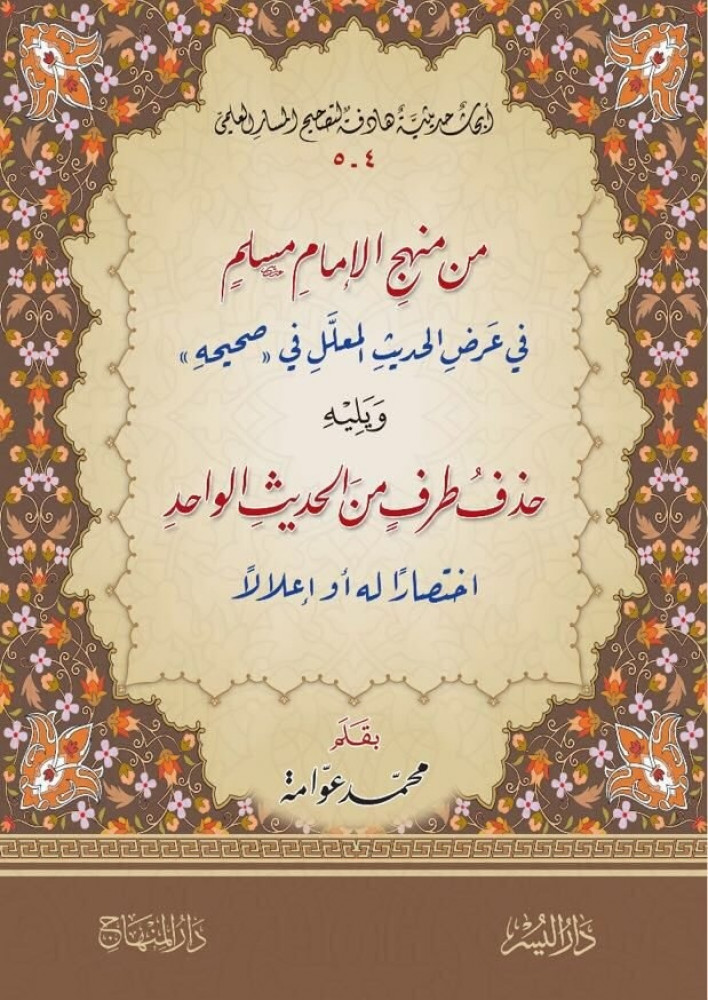 أبحاث حديثيَّةٌ هادفةٌ لتصحيح المسار العلمي
٤ - ٥
من منهجِ الإمامِ مسلمٍ
في عَرضِ الحديثِ المعلَّلِ في «صحيحهِ»
وَيَلِيْهِ
حذفُ طرفٍ منَ الحديثِ الواحدِ
اختصارًا له أو إعلالاً
بقَلَم
محمّد عوّامة
دَارُ اليُسْر
دَارُ المِنْهَاج